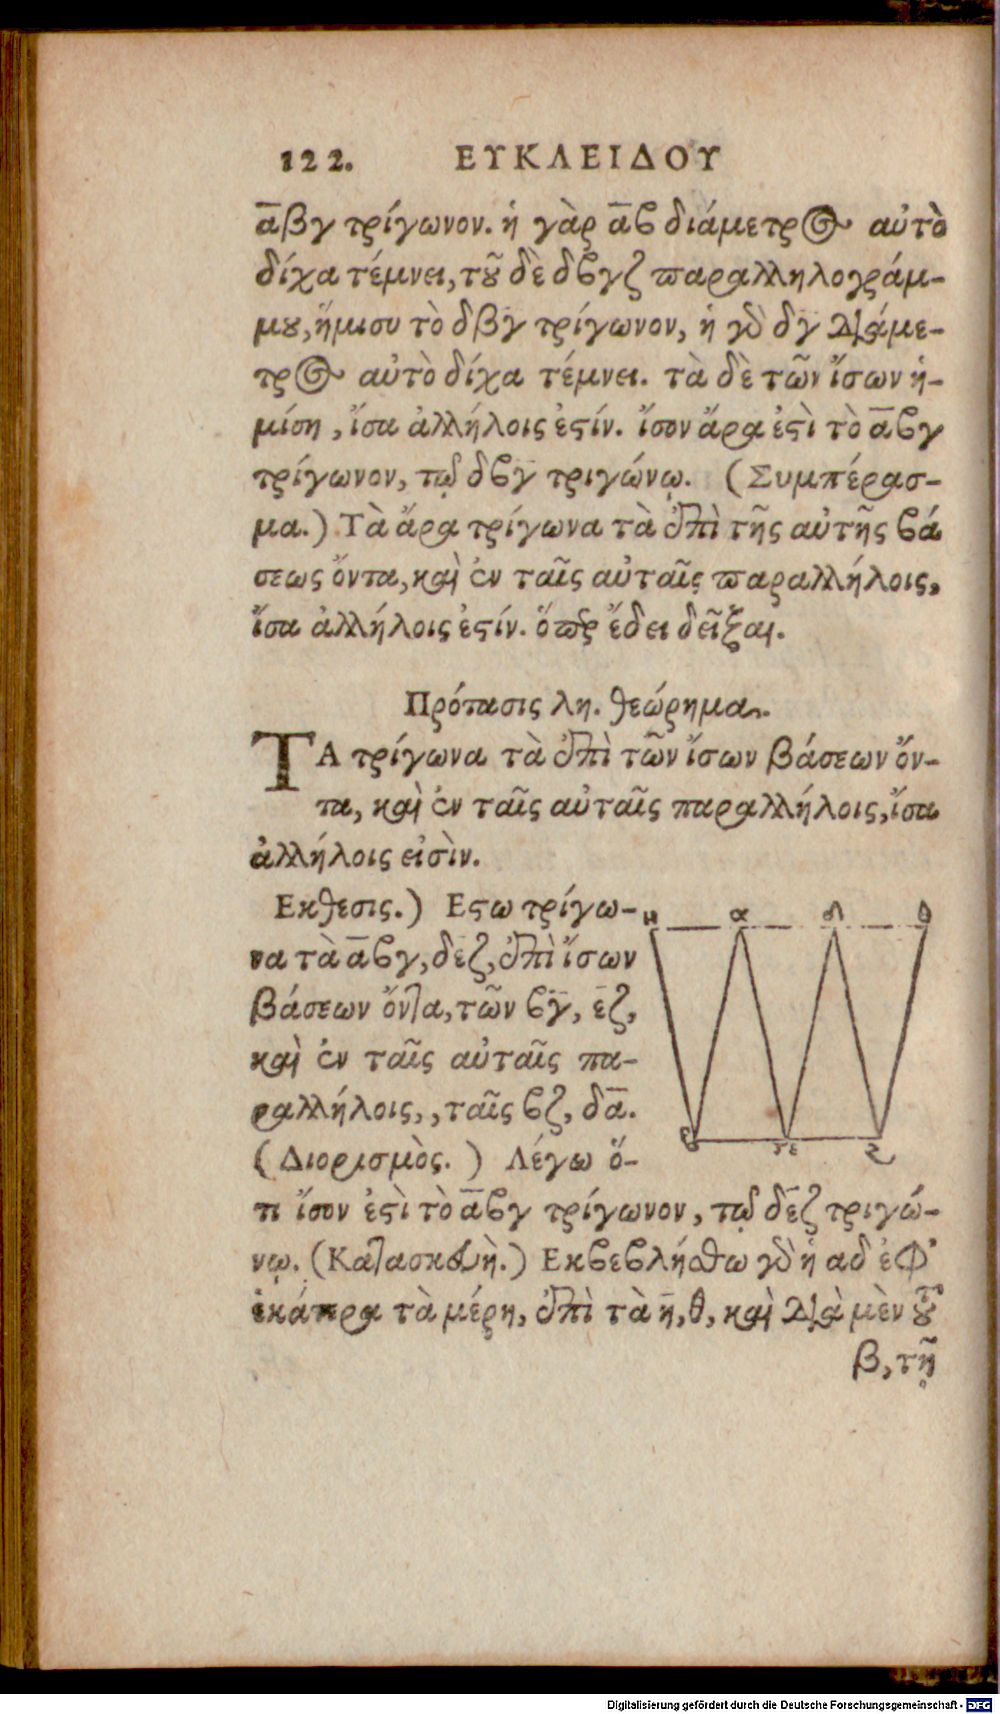 122. ΕΥΚΛΕΙΔΟΥ
α̅βγ τρίγωνον. ἡ γὰρ α̅ϐ διάμετρος αὐτὸ
δίχα τέμνει, τοῦ δὲ δϐγζ παραλληλογράμ-
μου, ἥμισυ τὸ δβγ τρίγωνον, ἡ γὸ δγ διάμε-
τρος αὐτὸ δίχα τέμνει. τὰ δὲ τῶν ἴσων ἡ-
μίση, ἴσα ἀλλήλοις ἐςίν. ἴσον ἄρα ἐςὶ τὸ α̅ϐγ
τρίγωνον, τῷ δϐγ τριγώνῳ. (Συμπέρασ-
μα.) Τὰ ἄρα τρίγωνα τὰ ἐπὶ τῆς αὐτῆς ϐά
σεως ὄντα, καὶ ἐν ταῖς αὐταῖς παραλλήλοις,
ἴσα ἀλλήλοις ἐςίν. ὅπερ ἔδει δεῖξαι.
Πρότασις λη. θεώρημα.
ΤΑ τρίγωνα τὰ ἐπὶ τῶν ἴσων βάσεων ὄν-
τα, καὶ ἐν ταῖς αὐταῖς παραλλήλοις, ἴσα
ἀλλήλοις εἰσὶν.
Εκθεσις.) Εςω τρίγω-
να τὰ α̅ϐγ, δεζ, ἐπὶ ἴσων
βάσεων ὄντα, τῶν ϐγ̅, ε̅ζ,
καὶ ἐν ταῖς αὐταῖς πα-
ραλλήλοις,, ταῖς ϐζ, δα̅.
(Διορισμὸς.) Λέγω ὅ-
τι ἴσον ἐςὶ τὸ α̅ϐγ τρίγωνον, τῷ δε̅ζ τριγώ-
νῳ. (Κατασκευὴ.) Εκϐεϐλήσθω γὸ ἡ αδ ἐφ᾿
ἑκάτερα τὰ μέρη, ἐπὶ τὰ η̅, θ, καὶ διὰ μὲν τοῦ
β, τῇ
η α δ θ
ϐ γε ζ
Digitalisierung gefördert durch die Deutsche Forschungsgemeinschaft - DFG